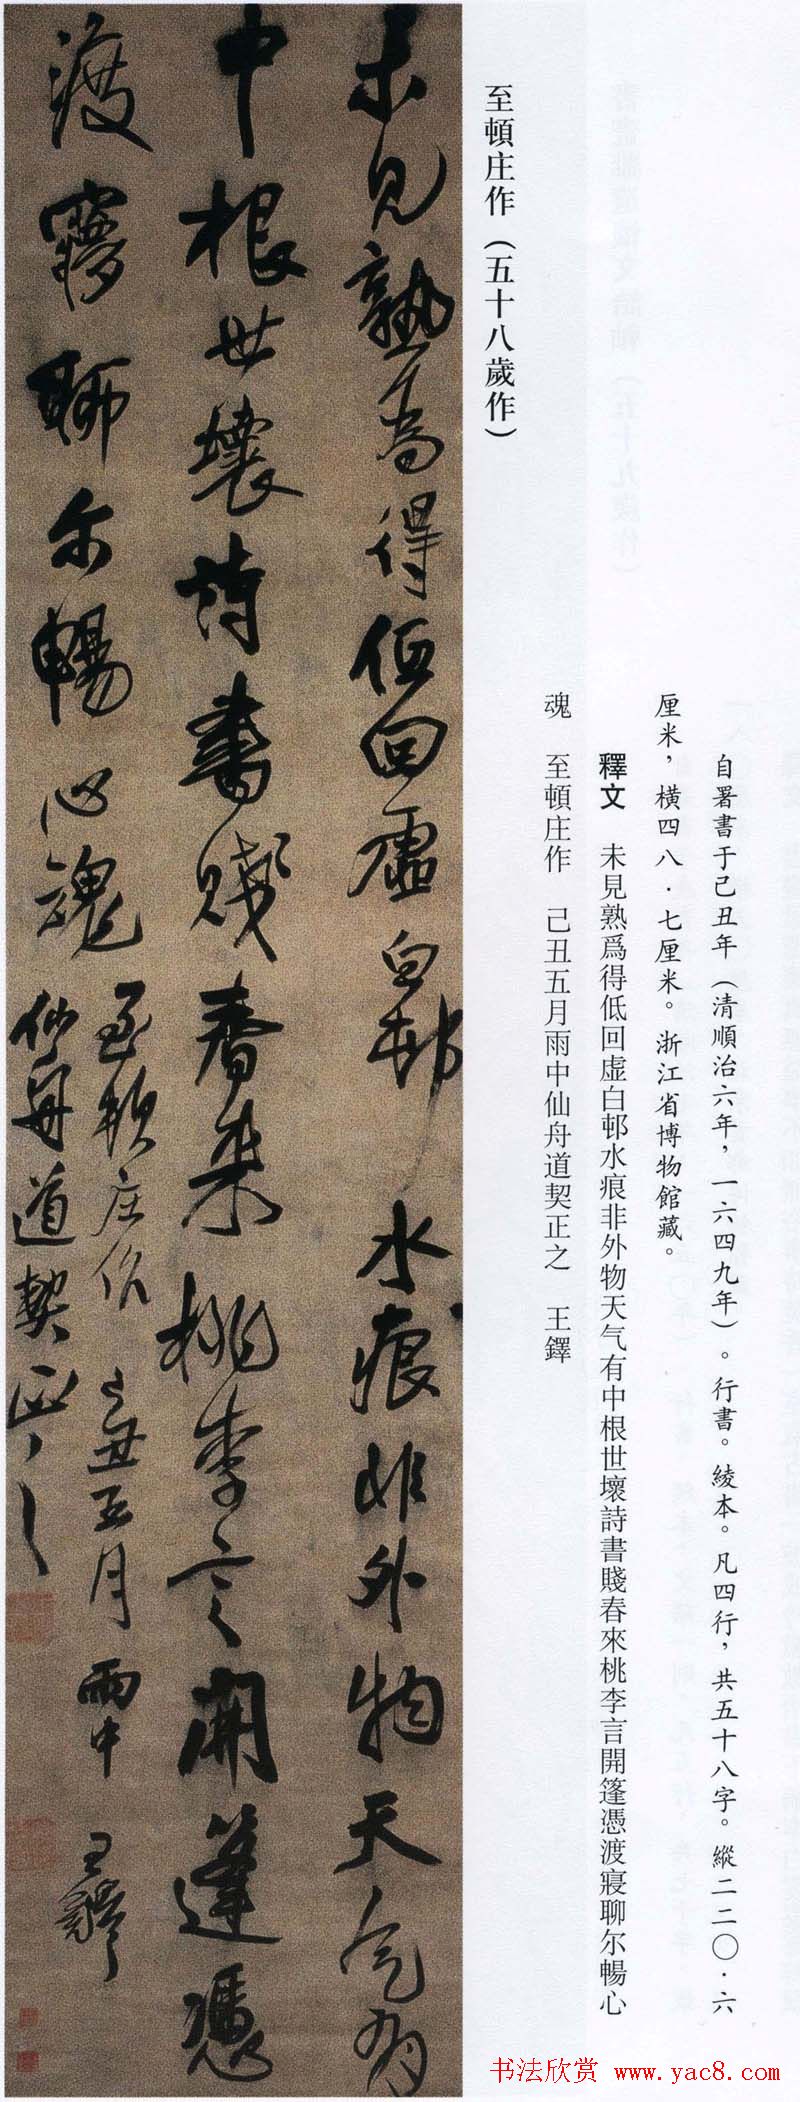 至頓庄作（五十八歲作）
自署書于己丑年（清順治六年，一六四九年）。行書。綾本。凡四行，共五十八字。縱二二〇·六
厘米，橫四八·七厘米。浙江省博物館藏。
釋文　未見熟爲得低回虛白邨水痕非外物天气有中根世壞詩書賤春來桃李言開篷憑渡寢聊尔暢心
魂　至頓庄作　己丑五月雨中仙舟道契正之　王鐸
未見熟爲得低回虛白邨水痕非外物天气有
中根世壞詩書賤春來桃李言開篷憑
渡寢聊尔暢心魂至頓庄作己丑五月雨中王鐸
仙舟道契正之
书法欣赏 www.yac8.com